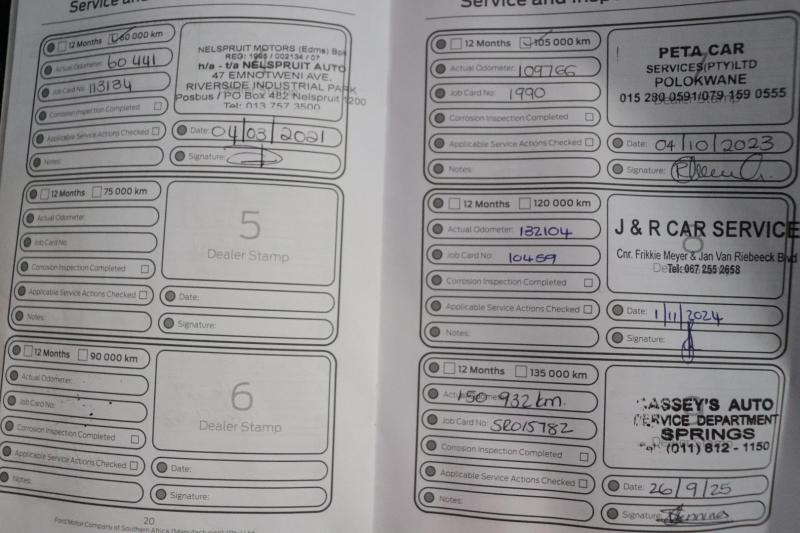 Service and
12 Months 60 000 km
Actual Odometer: 60 441
Job Card No: 113134
Corrosion Inspection Completed
Applicable Service Actions Checked
Notes:
NELSPRUIT MOTORS (Edms) Bpk
h/a - t/a NELSPRUIT AUTO
47 EMNOTWENI AVE.
RIVERSIDE INDUSTRIAL PARK
Posbus / PO Box 482 Nelspruit 1200
Tel: 013 757 3500
Date: 04/03/2021
Signature:
12 Months 75 000 km
Actual Odometer:
Job Card No:
Corrosion Inspection Completed
Applicable Service Actions Checked
Notes:
5
Dealer Stamp
Date:
Signature:
12 Months 90 000 km
Actual Odometer:
Job Card No:
Corrosion Inspection Completed
Applicable Service Actions Checked
Notes:
6
Dealer Stamp
Date:
Signature:
20
Ford Motor Company of Southern Africa
Service and
12 Months 105 000 km
Actual Odometer: 109766
Job Card No: 1990
Corrosion Inspection Completed
Applicable Service Actions Checked
Notes:
PETA CAR
SERVICES(PTY)LTD
POLOKWANE
015 280 0591/079 159 0555
Dealer Stamp
Date: 04/10/2023
Signature:
12 Months 120 000 km
Actual Odometer: 132104
Job Card No: 10459
Corrosion Inspection Completed
Applicable Service Actions Checked
Notes:
J & R CAR SERVICE
Cnr. Frikkie Meyer & Jan Van Riebeeck Blvd
Tel: 067 255 2658
Date: 1/11/2024
Signature:
12 Months 135 000 km
Actual Odometer: 150 932 km.
Job Card No: SR015782
Corrosion Inspection Completed
Applicable Service Actions Checked
Notes:
ASSEY'S AUTO
SERVICE DEPARTMENT
SPRINGS
(011) 812 - 1150
Date: 26/9/25
Signature: